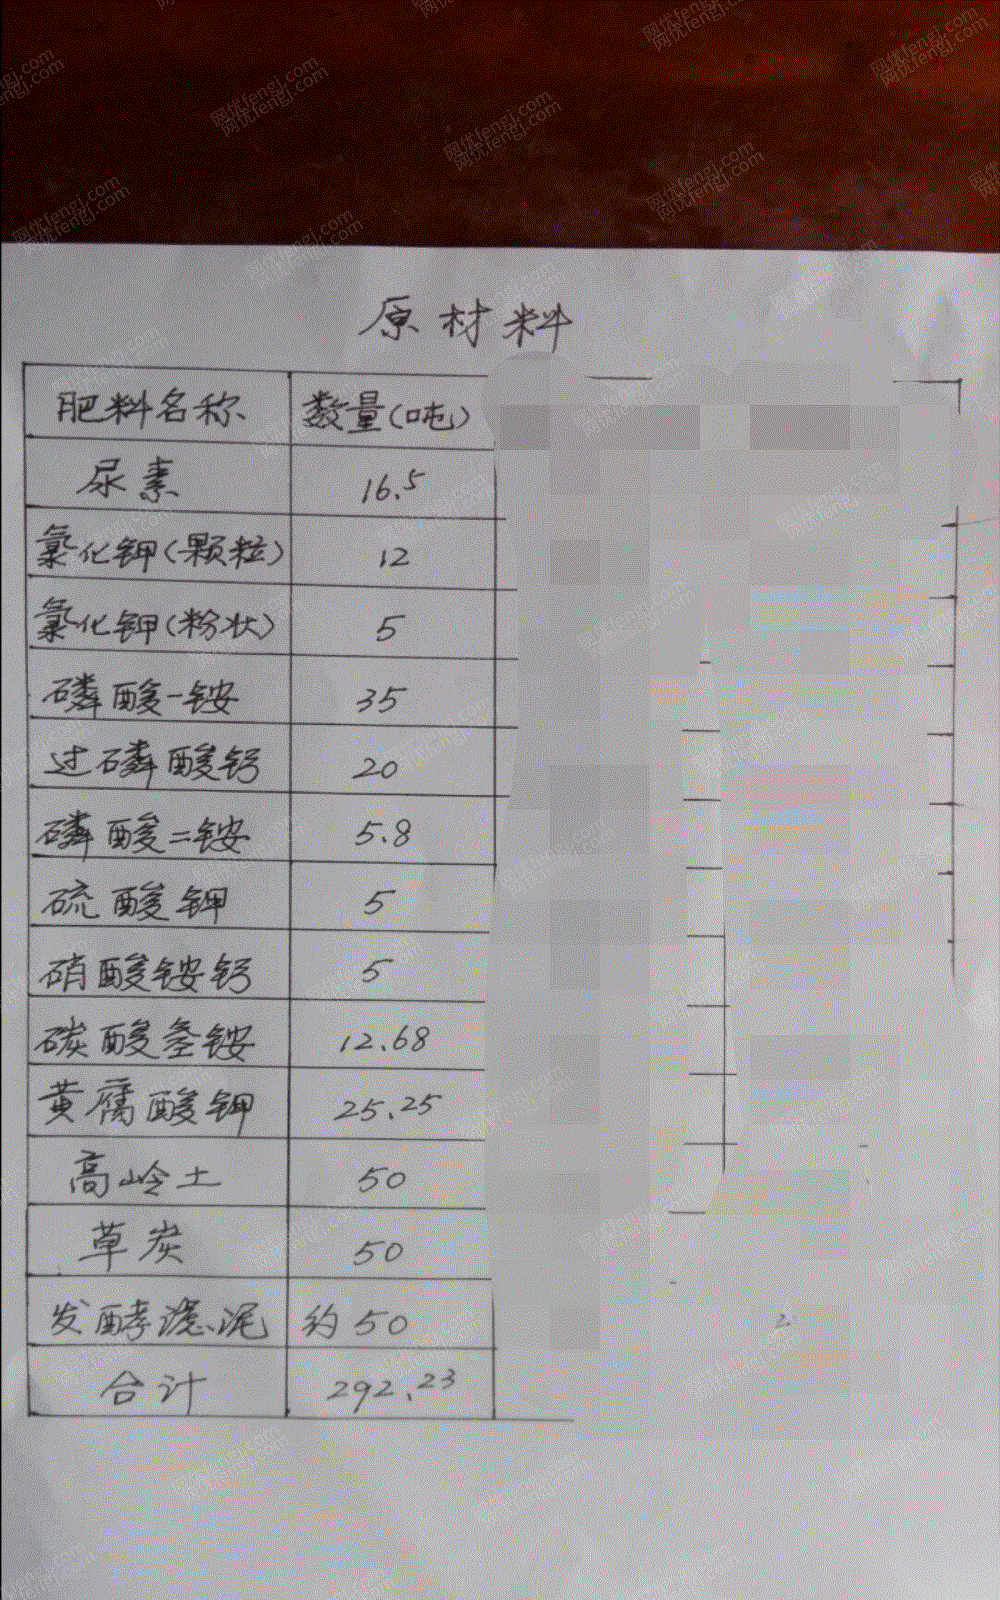 原材料
肥料名称 数量(吨)
尿素 16.5
氯化钾(颗粒) 12
氯化钾(粉状) 5
磷酸一铵 35
过磷酸钙 20
磷酸二铵 5.8
硫酸钾 5
硝酸铵钙 5
碳酸氢铵 12.68
黄腐酸钾 25.25
高岭土 50
草炭 50
发酵滤泥 约50
合计 292.23
网优fengj.com